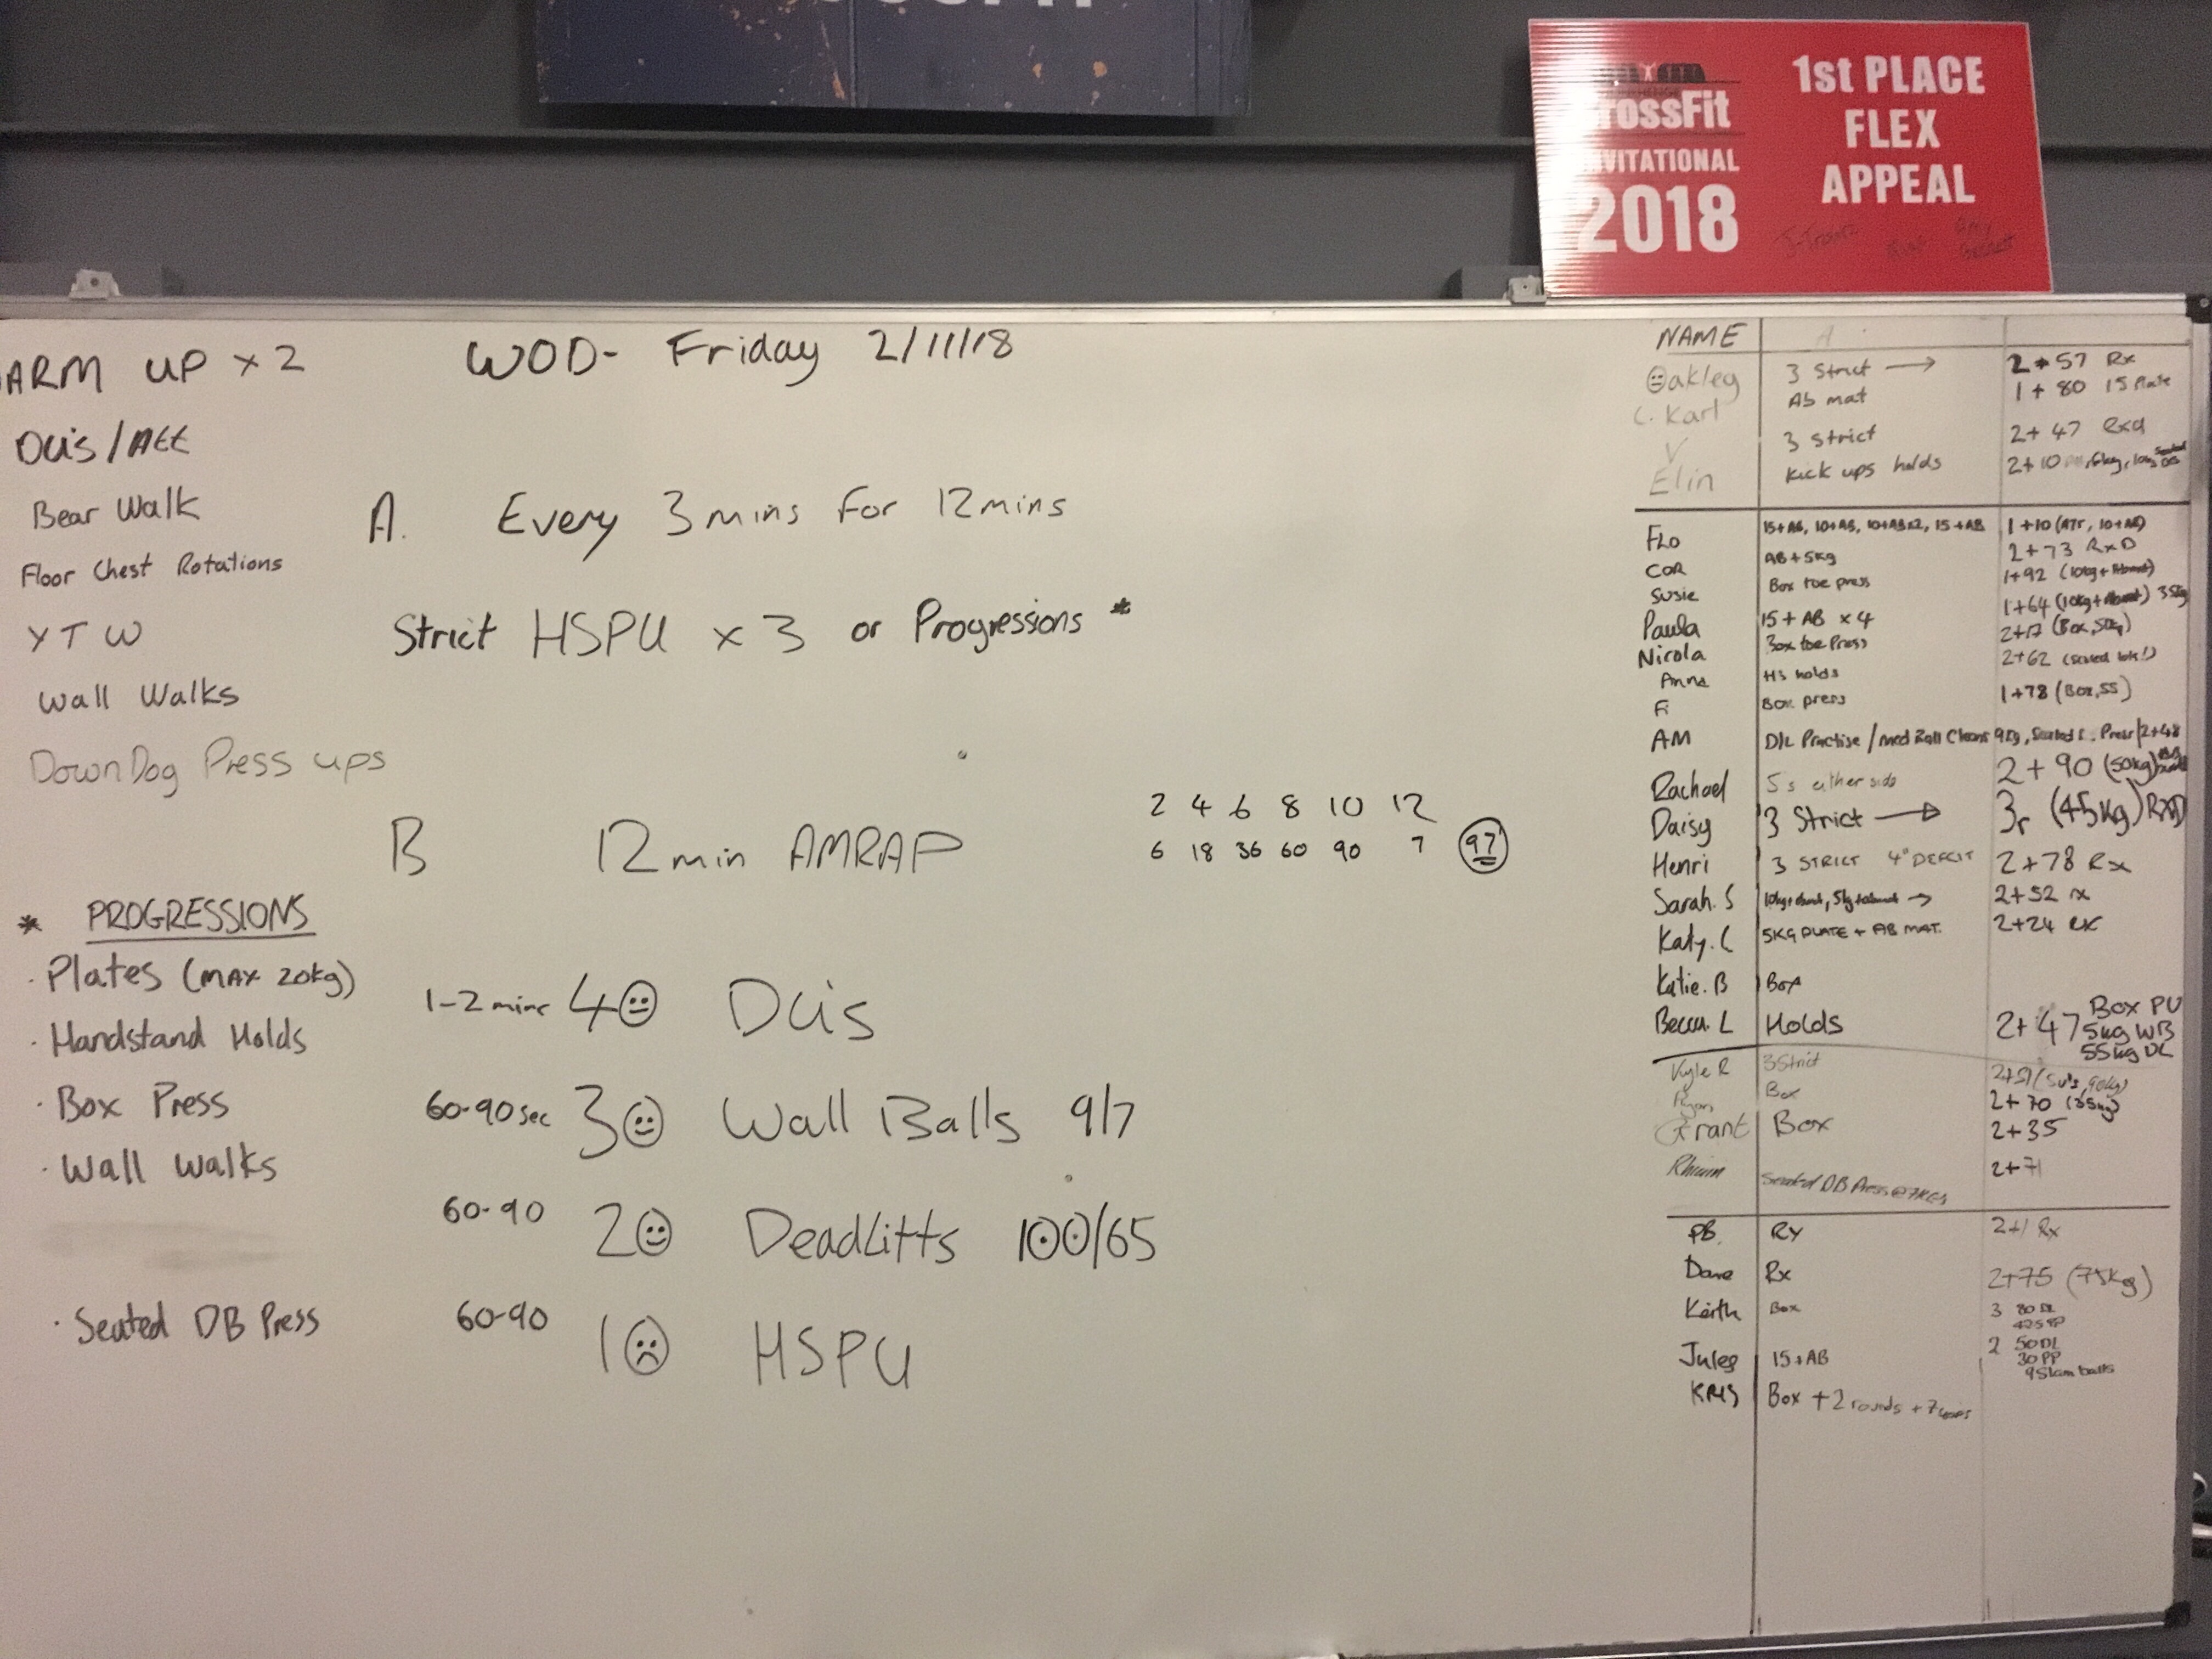 CrossFit
INVITATIONAL
2018
1st PLACE
FLEX
APPEAL
ARM UP x 2
DUs /
Bear Walk
Floor Chest Rotations
Y T W
Wall Walks
DownDog Press ups
* PROGRESSIONS
· Plates (MAX 20kg)
· Handstand Holds
· Box Press
· Wall Walks
· Seated DB Press
WOD- Friday 2/11/18
A. Every 3mins For 12mins
Strict HSPU x 3 or Progressions *
B 12min AMRAP
2 4 6 8 10 12
6 18 36 60 90 7 97
1-2 mins 40 DUs
60-90sec 30 Wall Balls 9/7
60-90 20 DeadLifts 100/65
60-90 10 HSPU
NAME A
Oakley 3 Strict → 2+57 Rx
C. Karl Ab mat 1+80 15 Plate
V 3 Strict 2+47 Rxd
Elin Kick ups holds 2+10
FLO 15+AB, 10+AB, 10+ABx2, 15+AB 1+10
COR AB+5kg 2+73 RxD
Susie Box toe press 1+92 (10kg+Abmat)
Paula 15+AB x4 1+64 (10kg+Abmat) 35kg
Nicola Box toe Press (Box, 50kg)
Anna HS holds 2+62
Fi Box press 1+78 (Box, 55)
AM D/L Practise / Med Ball Cleans 9kg, Seated Press 2+48
Rachael 5s either side 2+90 (50kg)
Daisy 3 Strict → 3r (45kg) RXD
Henri 3 STRICT 4" DEFCIT 2+78 Rx
Sarah. S → 2+52 rx
Katy. C 5KG PLATE + AB MAT. 2+24 RX
Katie. B Box
Becca. L Holds 2+47 Box PU
5kg WB
55kg DL
Kyle R 3 Strict
Ryan Box 2+70
Grant Box 2+35
Seated DB Press @ 7KGS 2+71
PB. RX 2+1 Rx
Dave Rx 2+75 (75kg)
Keith Box 3 80 DL
Jules 15+AB 2 50DL
30 PP
9 Slam balls
KRIS Box + 2 rounds + 7